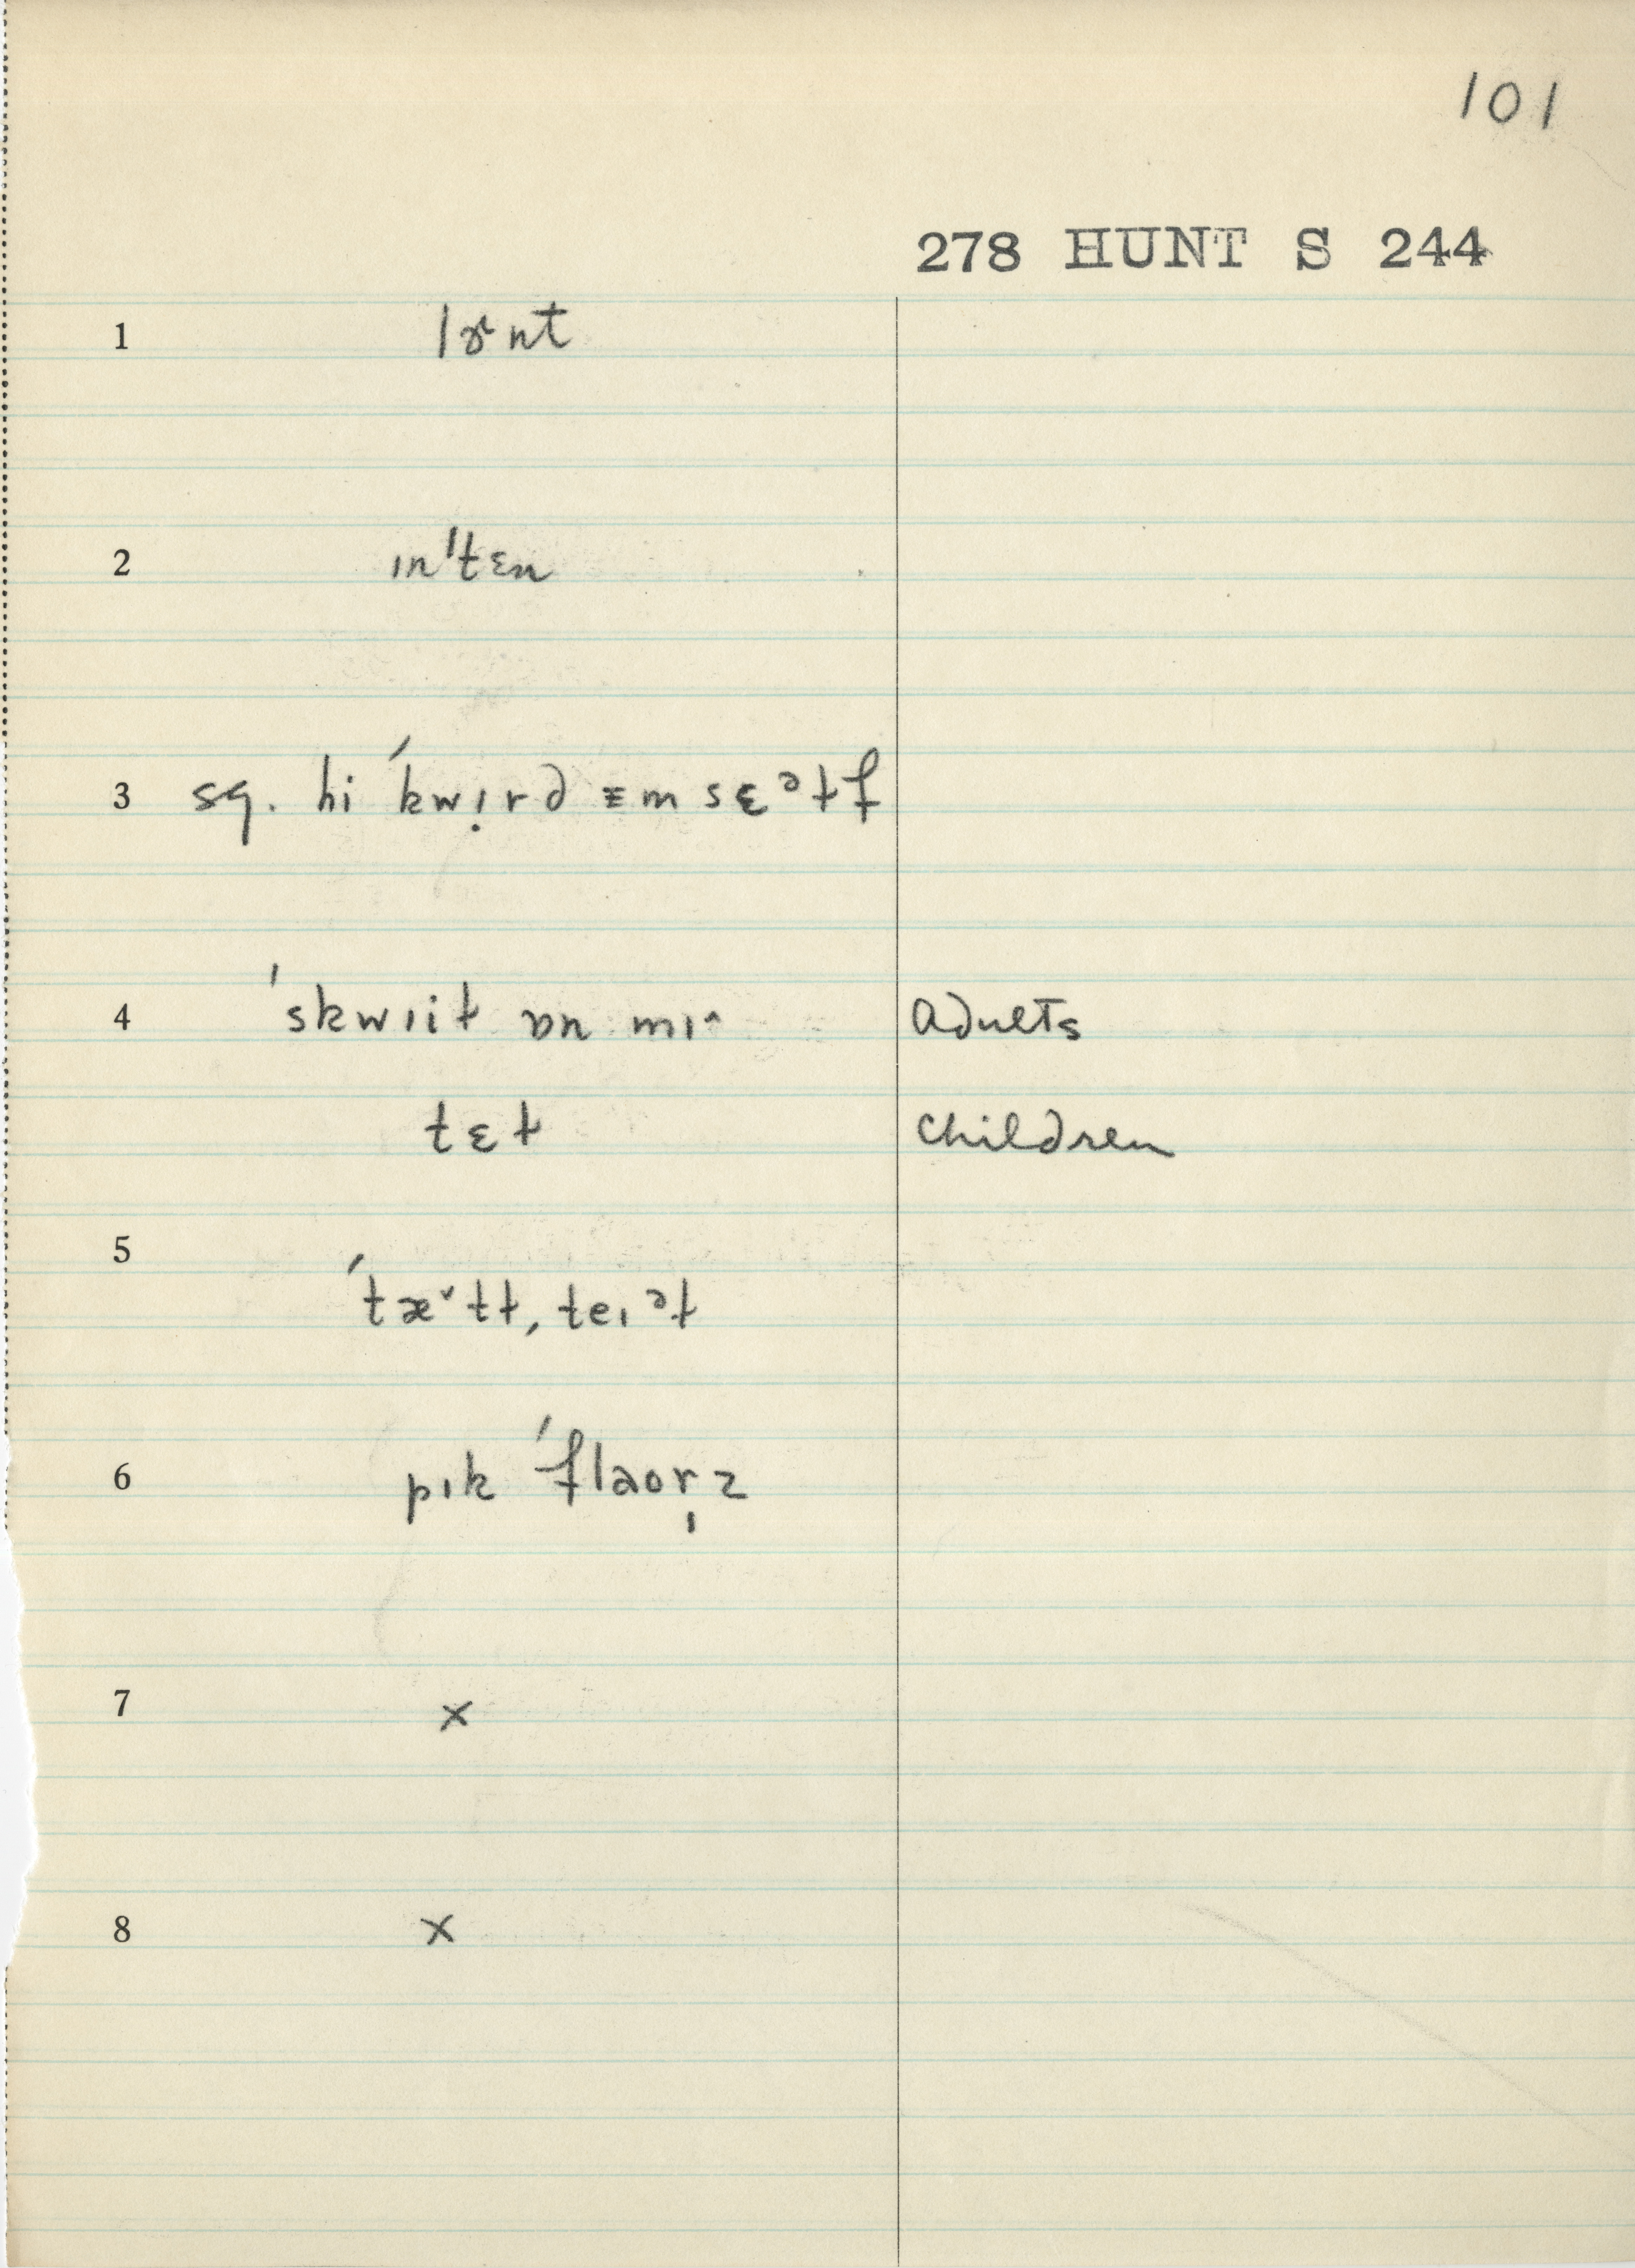 101
278 HUNT S 244
1 lɚnt
2 ɪn'tɛn
3 sg. hi 'kwɪ̣rd ɪm sɛəłf
4 'skwɪił ɒn mɪ^ adults
tɛł children
5 'tæ˅tł, teɪəł
6 pɪk 'flaoṛz
7 x
8 x